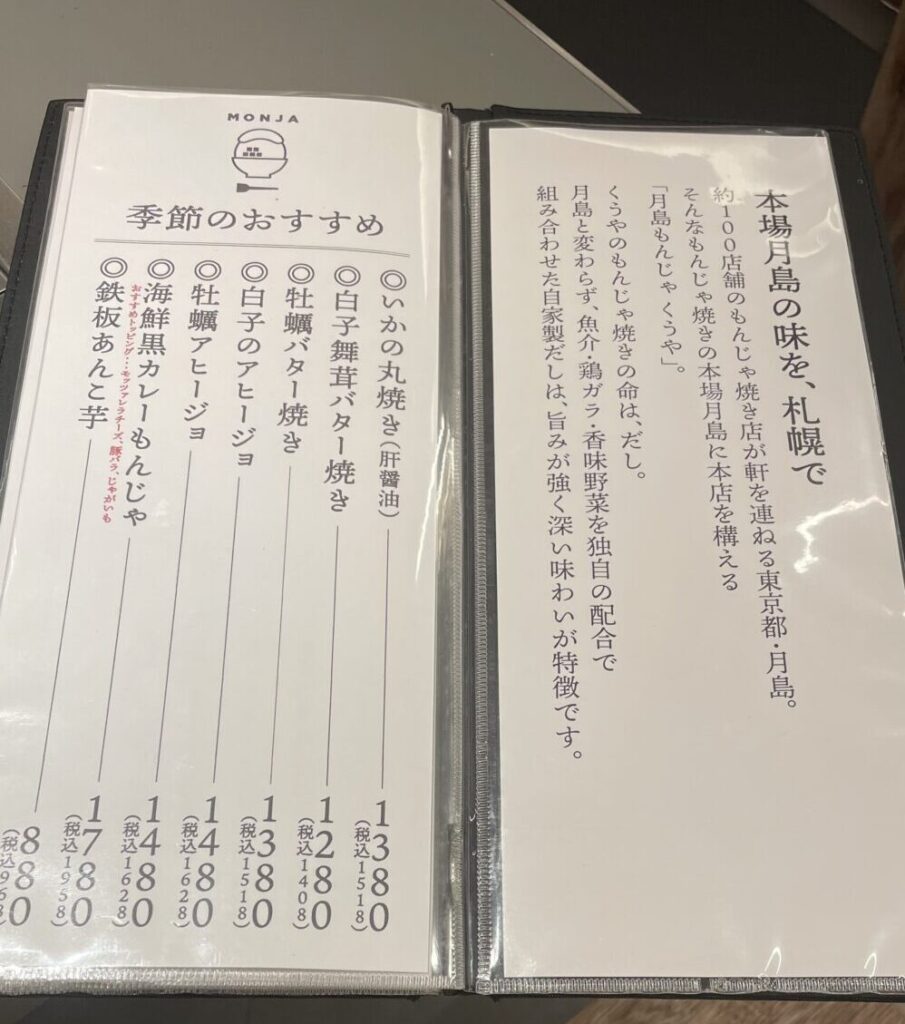 本場月島の味を、札幌で
約100店舗のもんじゃ焼き店が軒を連ねる東京都・月島。
そんなもんじゃ焼きの本場月島に本店を構える
「月島もんじゃ くうや」。
くうやのもんじゃ焼きの命は、だし。
月島と変わらず、魚介・鶏ガラ・香味野菜を独自の配合で
組み合わせた自家製だしは、旨みが強く深い味わいが特徴です。
MONJA
季節のおすすめ
◎いかの丸焼き(肝醤油) 1380(税込1518)
◎白子舞茸バター焼き 1280(税込1408)
◎牡蠣バター焼き 1380(税込1518)
◎白子のアヒージョ 1480(税込1628)
◎牡蠣アヒージョ 1480(税込1628)
◎海鮮黒カレーもんじゃ 1780(税込1958)
おすすめトッピング・・・モッツァレラチーズ、豚バラ、じゃがいも
◎鉄板あんこ芋 880(税込968)